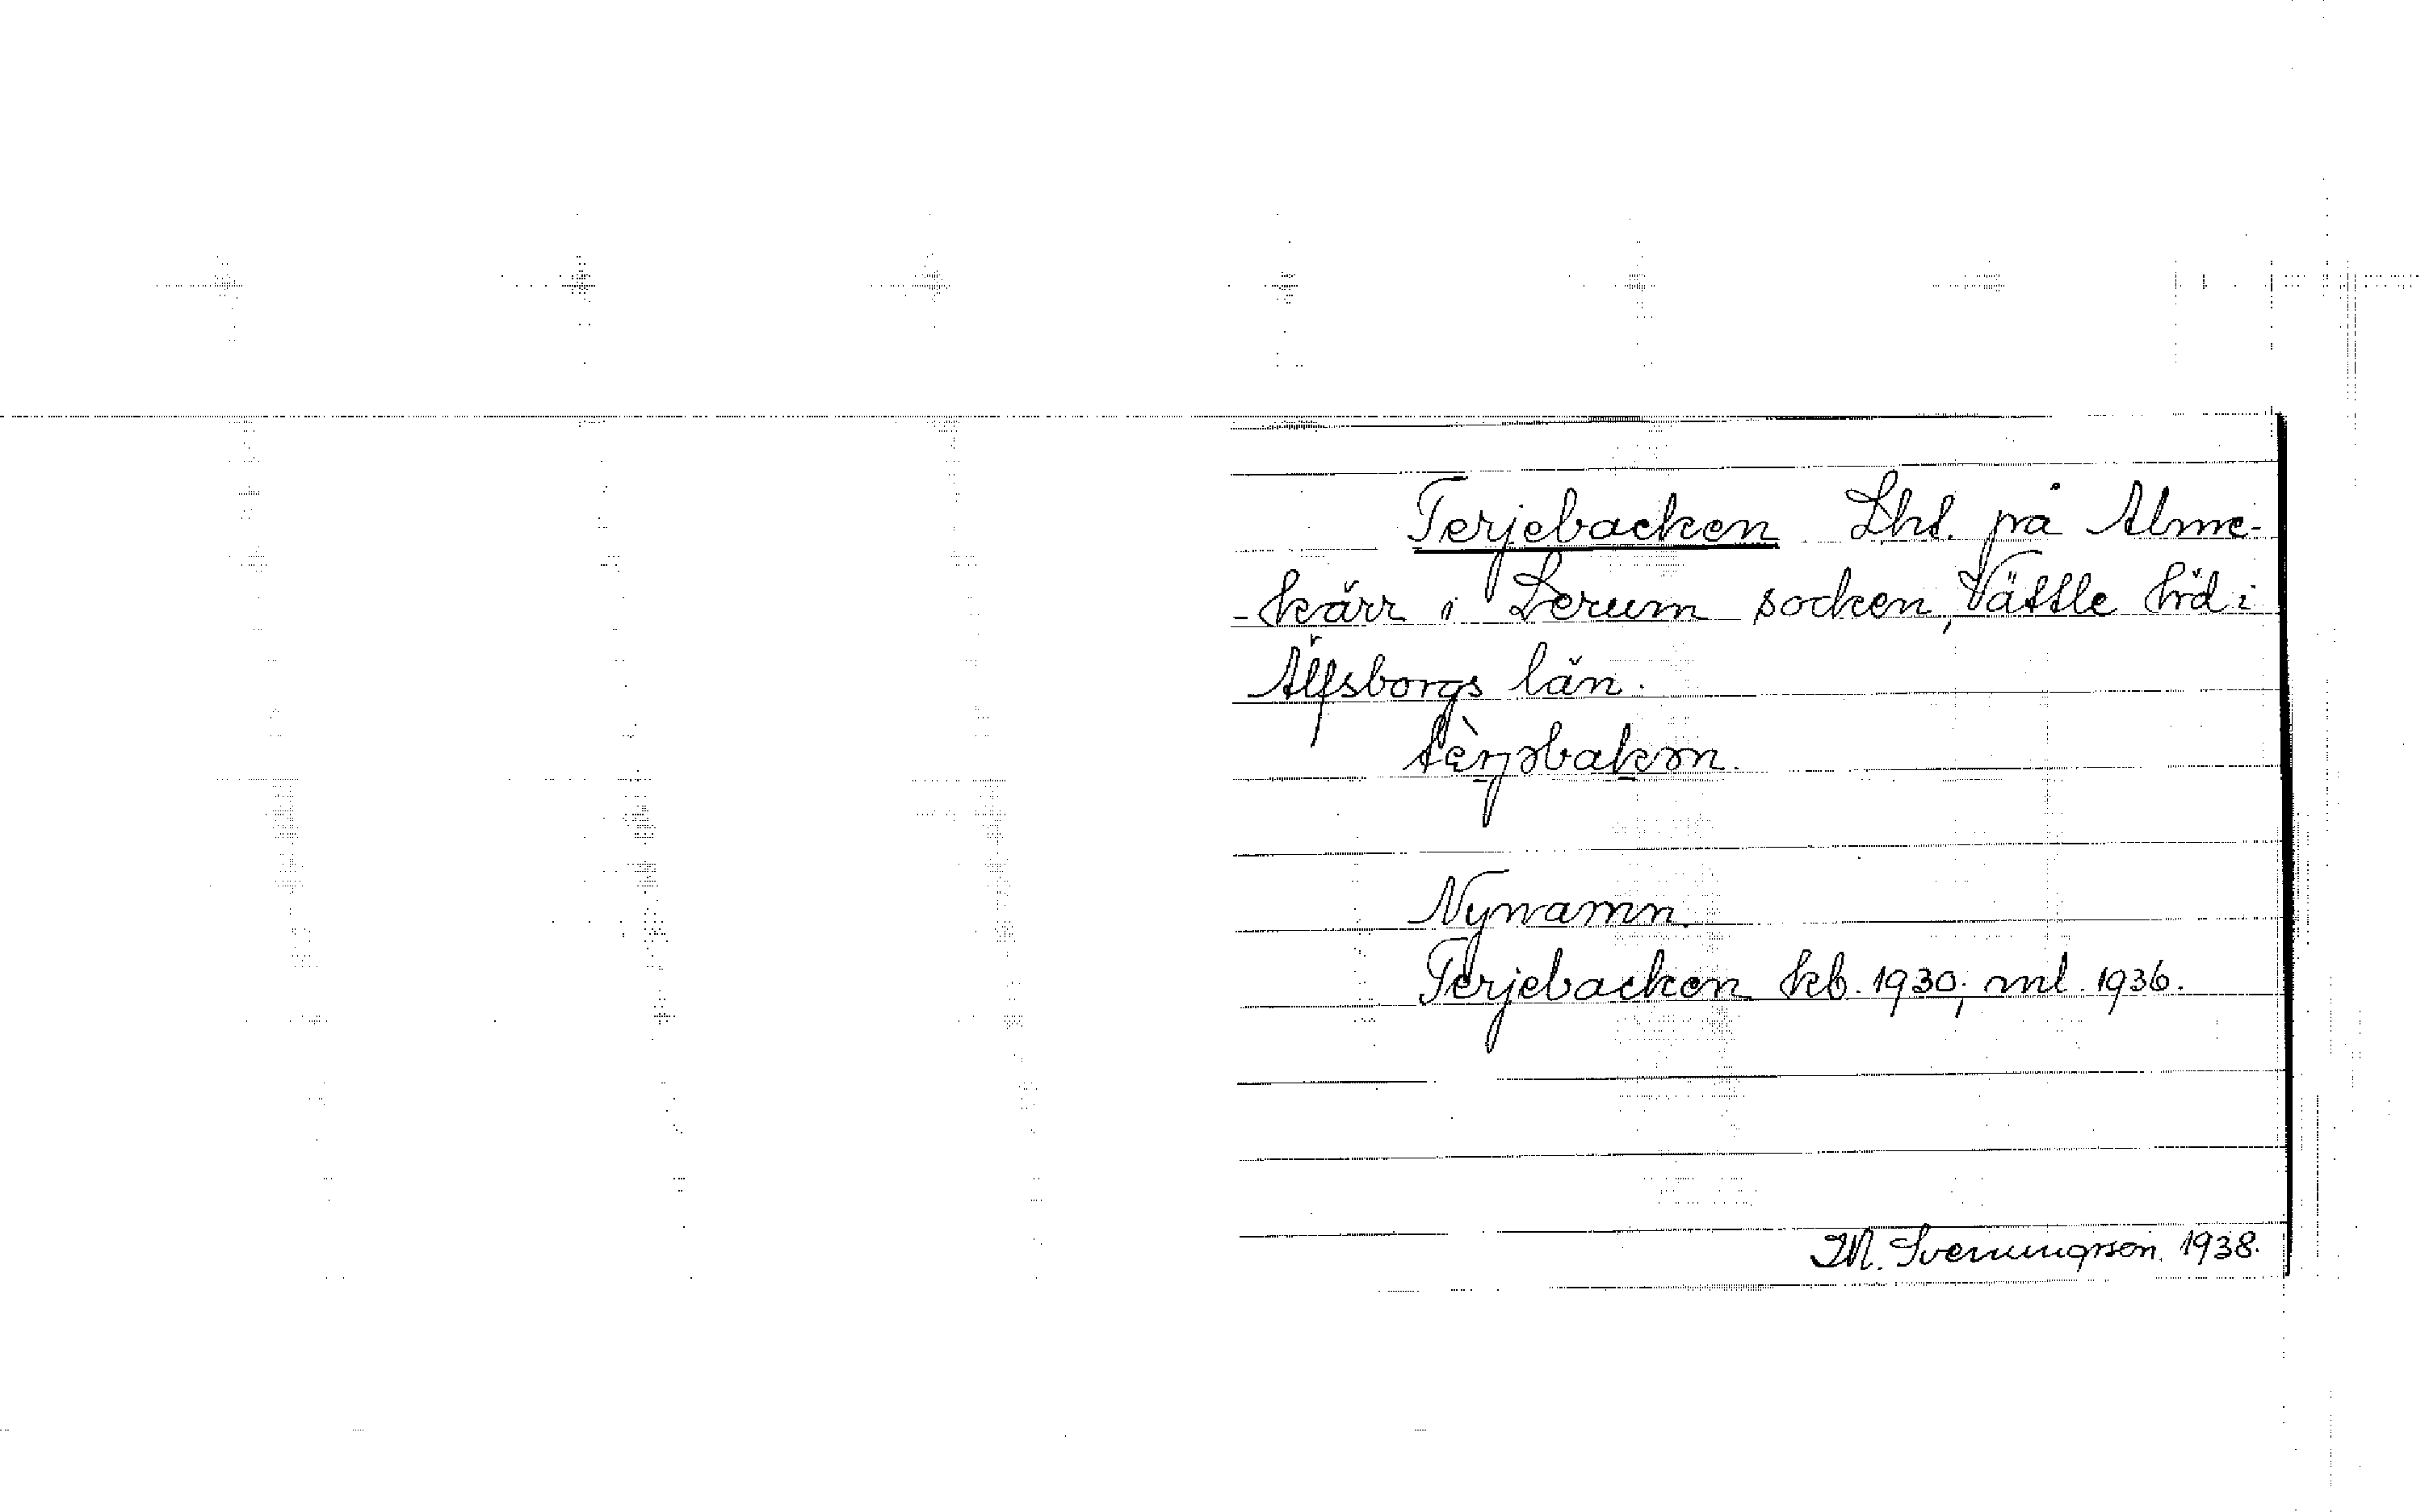 Terjebacken Lht. på Alme-
-kärr i Lerum socken, Vättle hrd i
Älfsborgs län.
tèrjəbakən.
Nynamn.
Terjebacken kb. 1930; ml. 1936.
I.M. Svenungson. 1938.